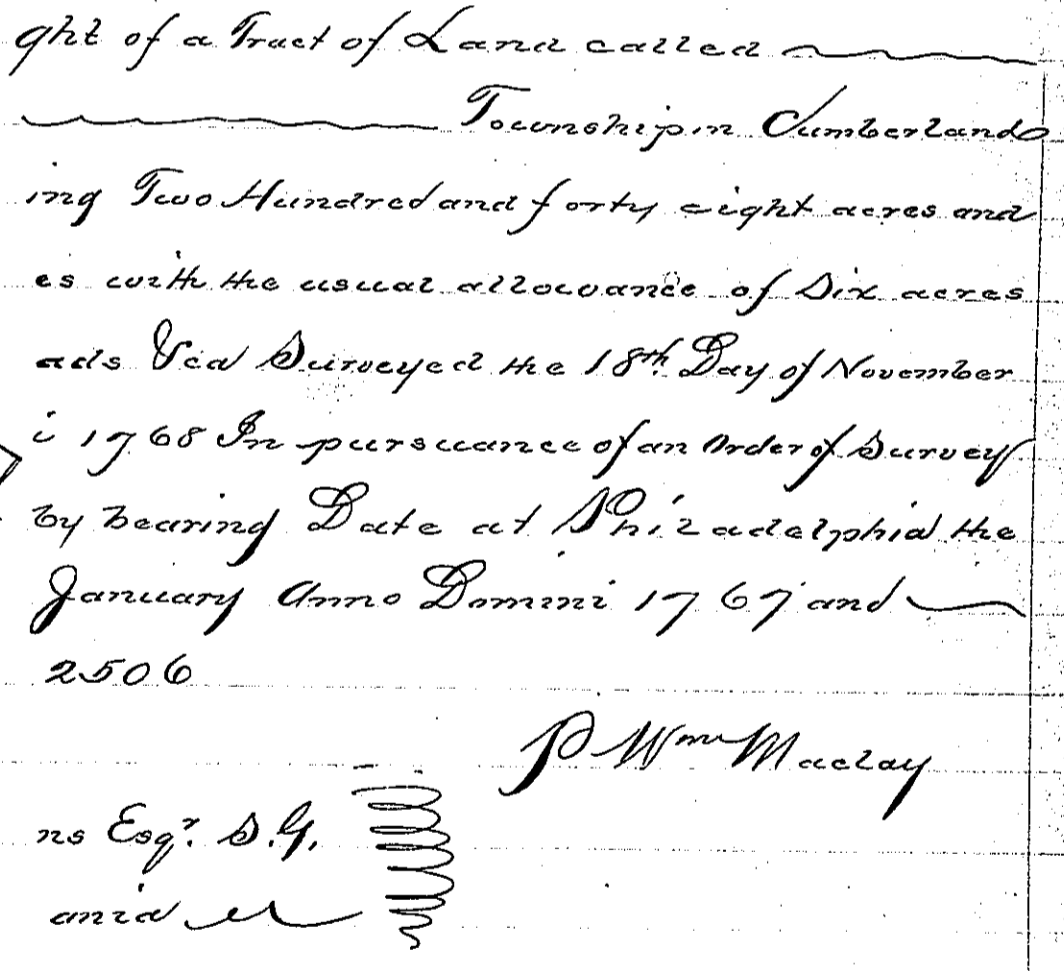 ght of a Tract of Land called
Township in Cumberland
ing Two Hundred and forty eight acres and
es with the usual allowance of Six acres
ads &ca Surveyed the 18th Day of November
i 1768 In pursuance of an Order of Survey
by bearing Date at Philadelphia the
January Anno Domini 1767 and
2506
P Wm Maclay
ns Esqr. S.G.
ania